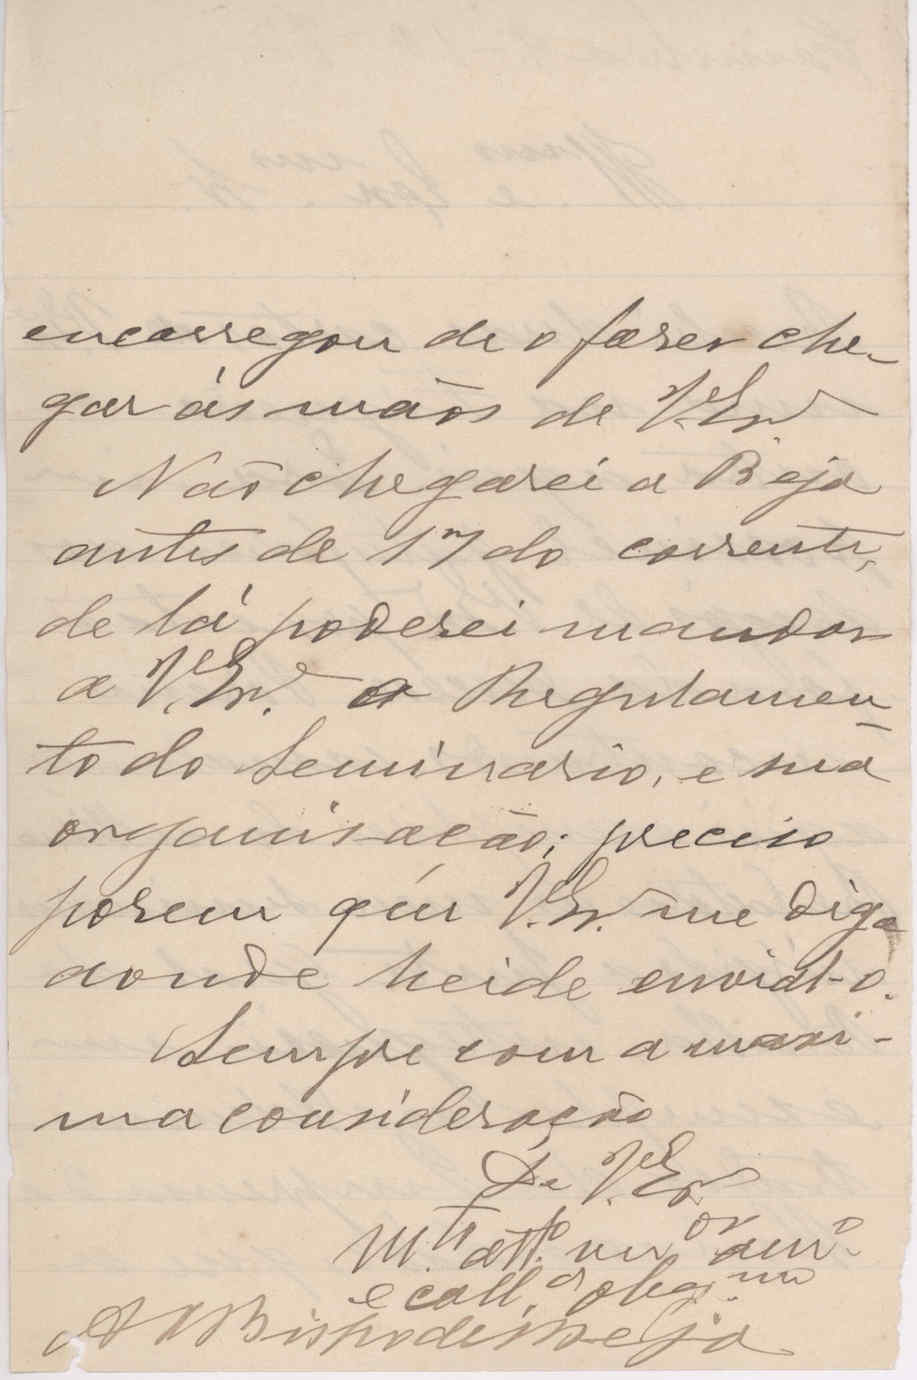 encarregou de o fazer che-
gar ás mãos de V. Ex.ª
Não chegarei a Beja
antes de 17 do corrente,
de lá poderei mandar
a V. Ex.ª o Regulamen
to do Seminario, e sua
organisação; preciso
porem que V. Ex.ª me diga
aonde heide enviál-o.
Sempre com a maxi-
ma consideração
De V. Ex.ª
M.to att.o ven.or am.o
e coll.a obg.mo
A Bispo de Beja